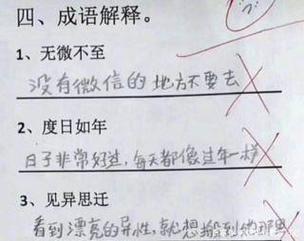 四、成语解释。
1、无微不至
没有微信的地方不要去
2、度日如年
日子非常好过，每天都像过年一样
3、见异思迁
看到漂亮的异性，就想搬到她那里